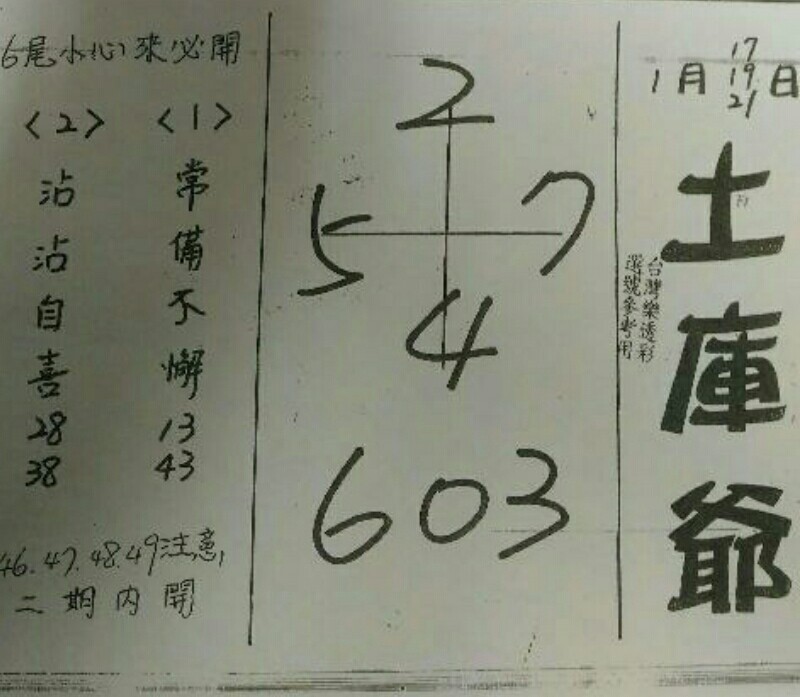 1月 17 19 21 日
土庫爺
台灣樂透彩
選號參考用
2
5 7
4
603
6尾小心來必開
<1>
常備不懈
13
43
<2>
沾沾自喜
28
38
46.47.48.49注意,
二期內開